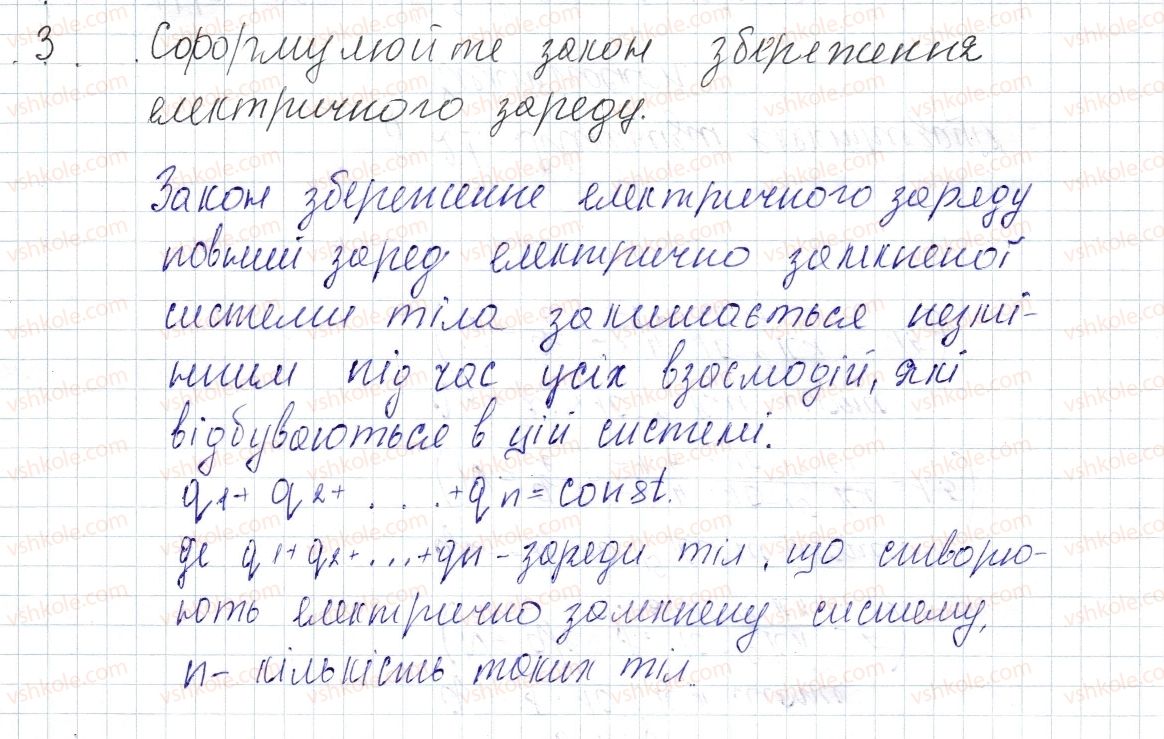 3. Сформулюйте закон збереження
електричного зареду.
Закон збереженне електричного заряду
повний заред електрично замкненої
системи тіла залишається незмі-
нним під час усіх взаємодій, які
відбуваються в цій системі.
q1+ q2+ . . . +qn = const.
де q1+q2+...+qn - зареди тіл, що створю-
ють електрично замкнену систему,
n - кількість таких тіл.